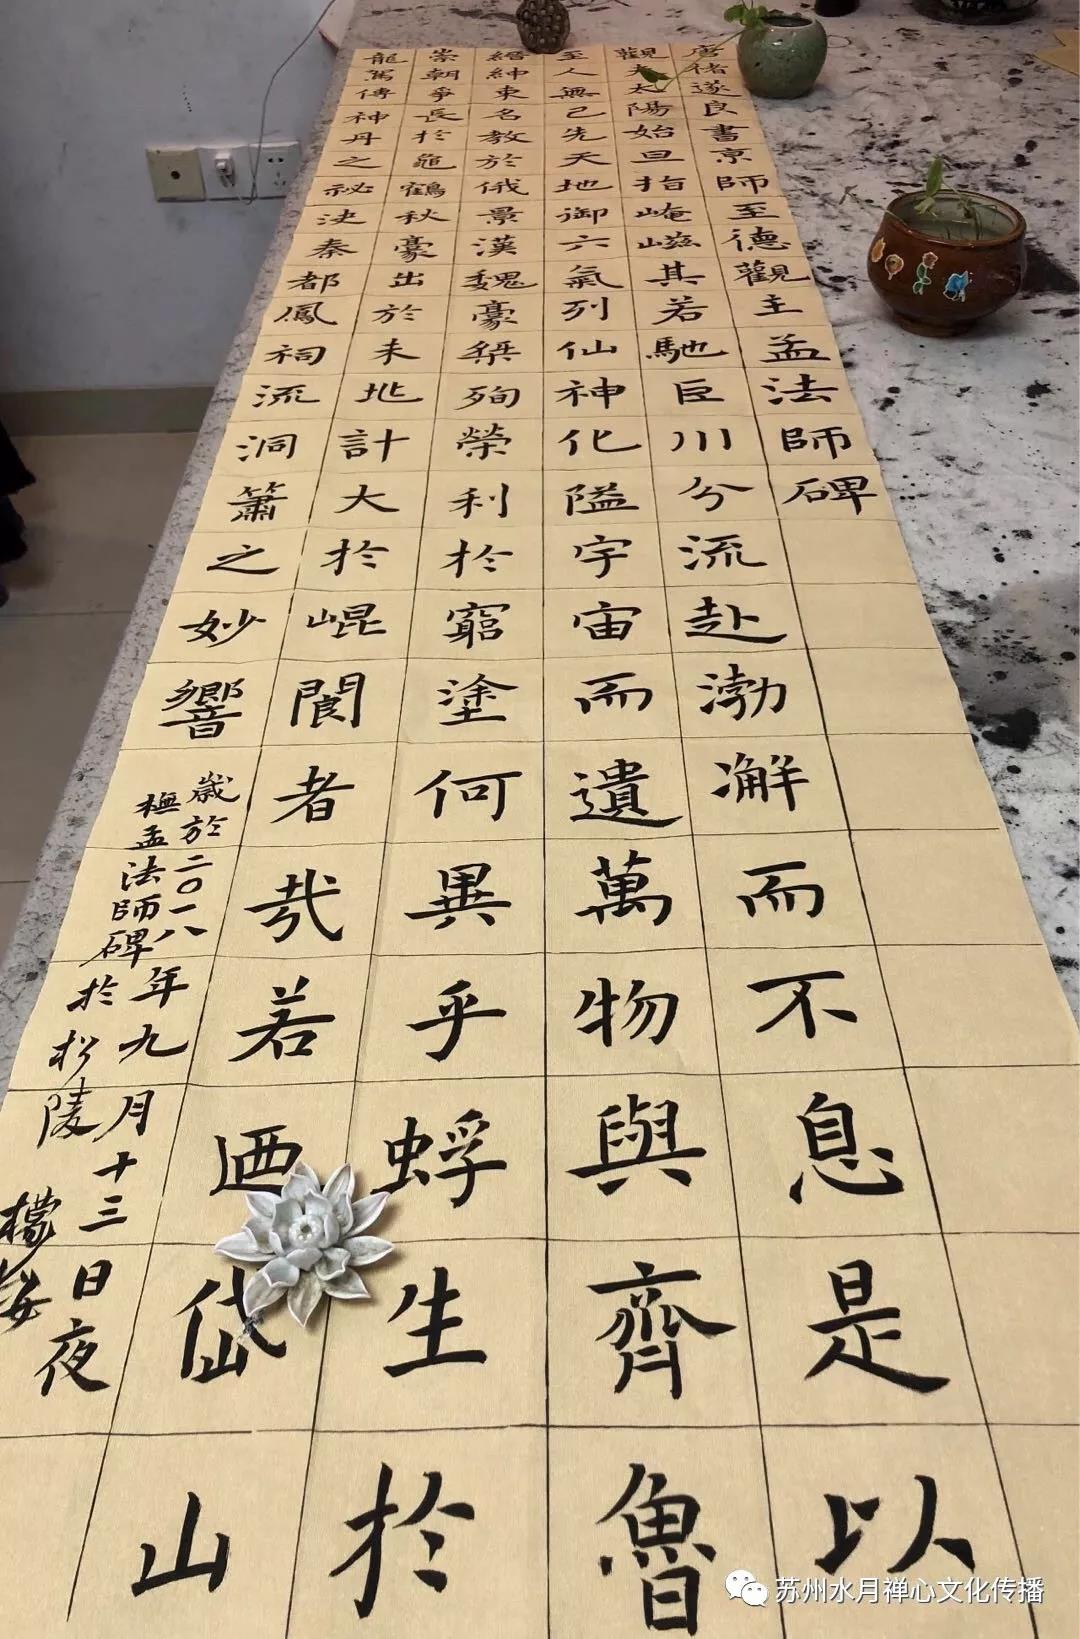 唐褚遂良書京師至德觀主孟法師碑
觀夫太陽始旦指崦嵫其若馳巨川分流赴渤澥而不息是以
至人無己先天地御六氣列仙神化隘宇宙而遺萬物與齊魯
縉紳束名教於俄景漢魏豪桀殉榮利於窮塗何異乎蜉生於
崇朝爭長於龜鶴秋豪出於未兆計大於崐閬者哉若迺岱山
龍駕傳神丹之祕決秦都鳳祠流洞簫之妙響
歲於二〇一八年九月十三日夜
橅孟法師碑於松陵
苏州水月禅心文化传播